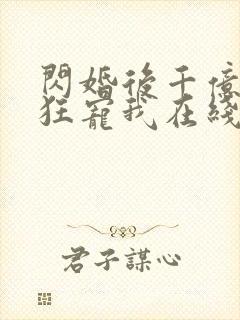 閃婚後千億
狂寵我在綫
君子謀心